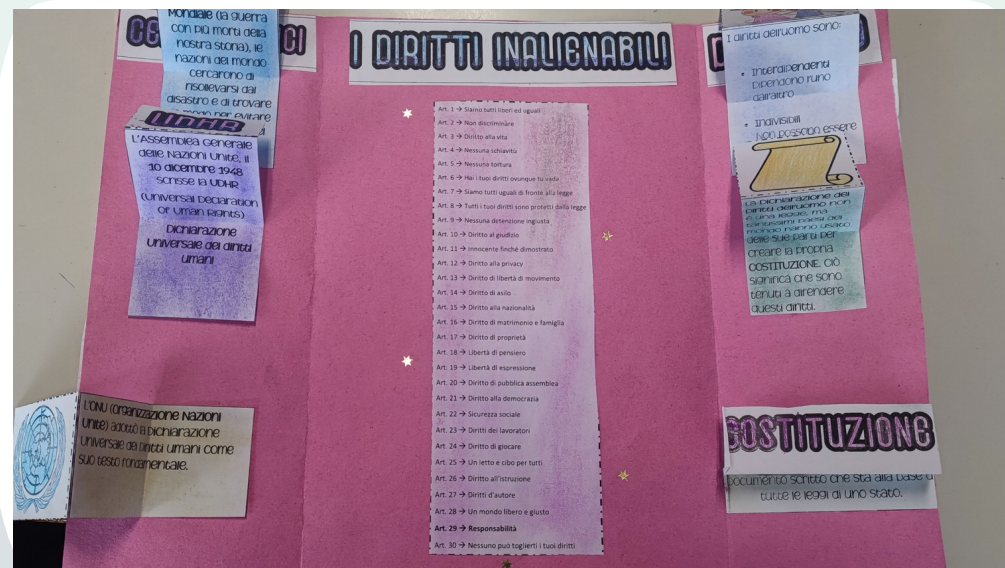 CE
CI
Mondiale (la guerra
con più morti della
nostra storia), le
nazioni del mondo
cercarono di
risollevarsi dal
disastro e di trovare
UDHR
L'Assemblea Generale
delle Nazioni Unite, il
10 dicembre 1948
scrisse la UDHR
(Universal Declaration
of Uman Rights)
Dichiarazione
Universale dei diritti
umani
L'ONU (Organizzazione Nazioni
Unite) adottò la Dichiarazione
Universale dei Diritti Umani come
suo testo fondamentale.
I DIRITTI INALIENABILI
Art. 1 → Siamo tutti liberi ed uguali
Art. 2 → Non discriminare
Art. 3 → Diritto alla vita
Art. 4 → Nessuna schiavitù
Art. 5 → Nessuna tortura
Art. 6 → Hai i tuoi diritti ovunque tu vada
Art. 7 → Siamo tutti uguali di fronte alla legge
Art. 8 → Tutti i tuoi diritti sono protetti dalla legge
Art. 9 → Nessuna detenzione ingiusta
Art. 10 → Diritto al giudizio
Art. 11 → Innocente finché dimostrato
Art. 12 → Diritto alla privacy
Art. 13 → Diritto di libertà di movimento
Art. 14 → Diritto di asilo
Art. 15 → Diritto alla nazionalità
Art. 16 → Diritto di matrimonio e famiglia
Art. 17 → Diritto di proprietà
Art. 18 → Libertà di pensiero
Art. 19 → Libertà di espressione
Art. 20 → Diritto di pubblica assemblea
Art. 21 → Diritto alla democrazia
Art. 22 → Sicurezza sociale
Art. 23 → Diritti dei lavoratori
Art. 24 → Diritto di giocare
Art. 25 → Un letto e cibo per tutti
Art. 26 → Diritto all'istruzione
Art. 27 → Diritti d'autore
Art. 28 → Un mondo libero e giusto
Art. 29 → Responsabilità
Art. 30 → Nessuno può toglierti i tuoi diritti
I diritti dell'uomo sono:
• Interdipendenti
Dipendono l'uno
dall'altro
• Indivisibili
Non possono essere
La Dichiarazione dei
Diritti dell'uomo non
è una legge, ma
tantissimi paesi del
mondo hanno usato
delle sue parti per
creare la propria
COSTITUZIONE. Ciò
significa che sono
tenuti a difendere
questi diritti.
COSTITUZIONE
Documento scritto che sta alla base d
tutte le leggi di uno stato.